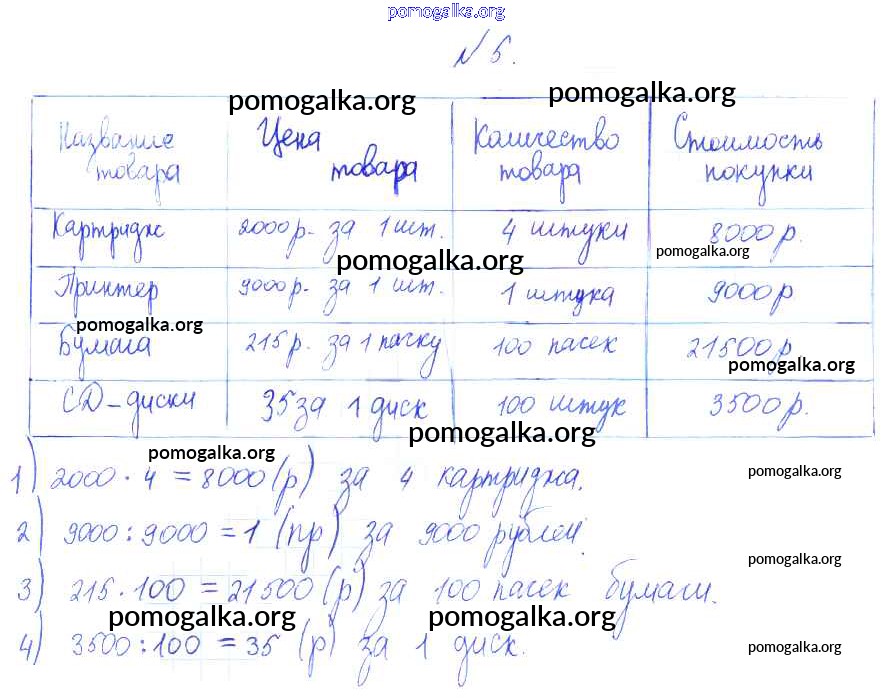 pomogalka.org
№ 5.
pomogalka.org pomogalka.org
Название товара Цена товара Количество товара Стоимость покупки
Картридж 2000р. за 1 шт. 4 штуки 8000р.
pomogalka.org pomogalka.org
Принтер 9000р. за 1 шт. 1 штука 9000р
pomogalka.org
Бумага 215р. за 1 пачку 100 пасек 21500р
pomogalka.org
CD-диски 35 за 1 диск 100 штук 3500р.
pomogalka.org pomogalka.org
1) 2000 · 4 = 8000 (р) за 4 картриджа.
pomogalka.org
2) 9000 : 9000 = 1 (пр) за 9000 рублей.
pomogalka.org
3) 215 · 100 = 21500 (р) за 100 пасек бумаги.
pomogalka.org pomogalka.org
4) 3500 : 100 = 35 (р) за 1 диск.
pomogalka.org